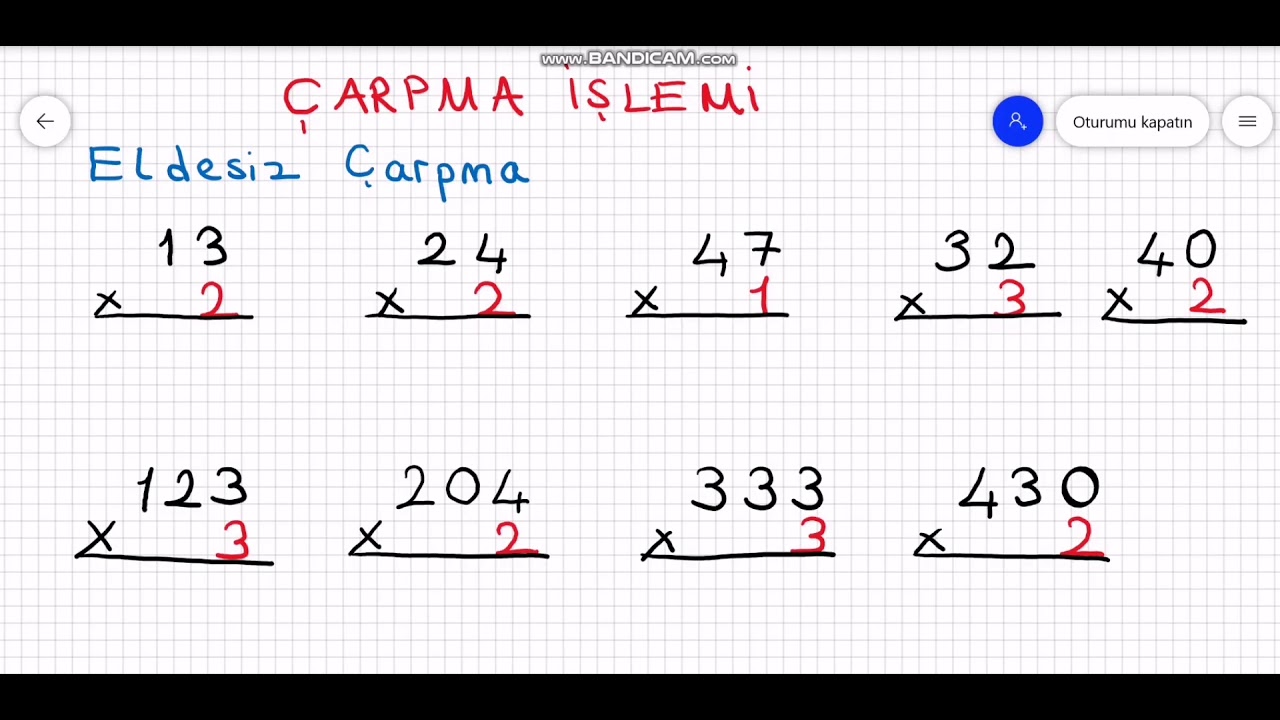 www.BANDICAM.com
ÇARPMA İŞLEMİ
Oturumu kapatın
Eldesiz Çarpma
13 24 47 32 40
x 2 x 2 x 1 x 3 x 2
123 204 333 430
x 3 x 2 x 3 x 2